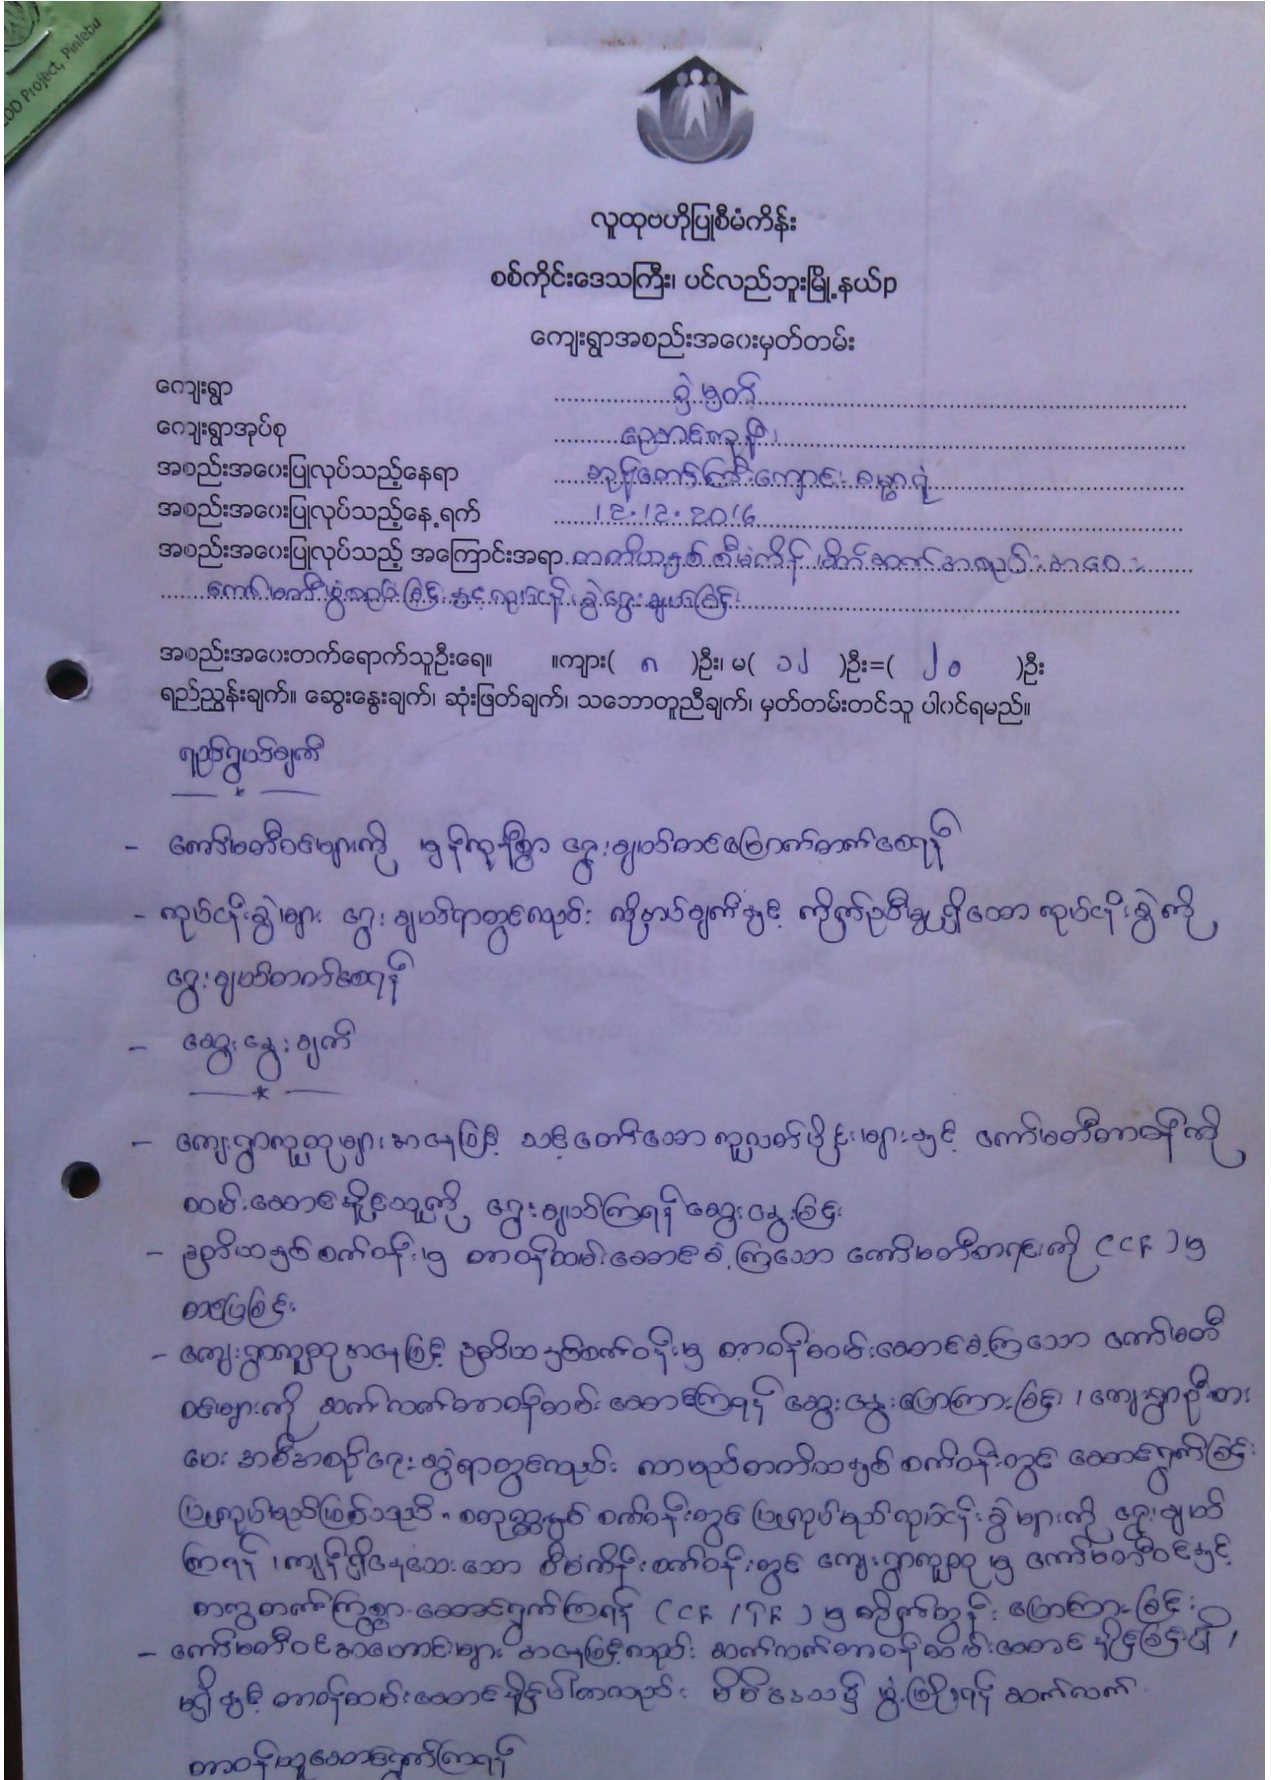 CDD Project, Pinlebu
လူထုဗဟိုပြုစီမံကိန်း
စစ်ကိုင်းဒေသကြီး၊ ပင်လည်ဘူးမြို့နယ်p
ကျေးရွာအစည်းအဝေးမှတ်တမ်း
ကျေးရွာ
ကျေးရွာအုပ်စု
အစည်းအဝေးပြုလုပ်သည့်နေရာ ဘုန်တော်ကြီးကျောင်း ဓမ္မာရုံ
အစည်းအဝေးပြုလုပ်သည့်နေ့ရက် 12.12.2016
အစည်းအဝေးပြုလုပ်သည့် အကြောင်းအရာ တတိယနှစ် စီမံကိန်း မိတ်ဆက် အစည်းအဝေး
ကော်မတီဖွဲ့စည်းခြင်းနှင့် လုပ်ငန်းခွဲရွေးချယ်ခြင်း
အစည်းအဝေးတက်ရောက်သူဦးရေ။ ။ကျား( ၈ )ဦး၊ မ( ၁၂ )ဦး=( ၂၀ )ဦး
ရည်ညွှန်းချက်။ ဆွေးနွေးချက်၊ ဆုံးဖြတ်ချက်၊ သဘောတူညီချက်၊ မှတ်တမ်းတင်သူ ပါဝင်ရမည်။
ရည်ရွယ်ချက်
- ကော်မတီဝင်များကို မှန်ကန်စွာ ရွေးချယ်တင်မြှောက်တတ်စေရန်
- လုပ်ငန်းခွဲများ ရွေးချယ်ရာတွင်လည်း လိုအပ်ချက်နှင့် ကိုက်ညီမှု ရှိသော လုပ်ငန်းခွဲကို
ရွေးချယ်တတ်စေရန်
- ဆွေးနွေးချက်
- ကျေးရွာလူထုများအနေဖြင့် သင့်တော်သော လူလတ်ပိုင်းများနှင့် ကော်မတီတာဝန်ကို
ထမ်းဆောင်နိုင်သူကို ရွေးချယ်ကြရန် ဆွေးနွေးခြင်း
- ဒုတိယနှစ်စက်ဝန်းမှ တာဝန်ထမ်းဆောင်ခဲ့ကြသော ကော်မတီစာရင်းကို (CCF) မှ
တင်ပြခြင်း
- ကျေးရွာလူထုအနေဖြင့် ဒုတိယနှစ်စက်ဝန်းမှ တာဝန်ထမ်းဆောင်ခဲ့ကြသော ကော်မတီ
ဝင်များကို ဆက်လက်တာဝန်ထမ်းဆောင်ကြရန် ဆွေးနွေးပြောကြားခြင်း၊ ကျေးရွာဦးစား
ပေး အစီအစဉ်ရေးဆွဲရာတွင်လည်း လာမည့်တတိယနှစ် စက်ဝန်းတွင် ဆောင်ရွက်ခြင်း
ပြုလုပ်မည်ဖြစ်သည်။ စတုတ္ထနှစ် စက်ဝန်းတွင် ပြုလုပ်မည့် လုပ်ငန်းခွဲများကို ရွေးချယ်
ကြရန်၊ ကျန်ရှိနေသေးသော စီမံကိန်းစက်ဝန်းတွင် ကျေးရွာလူထုမှ ကော်မတီဝင်နှင့်
တက်ကြွစွာ ဆောင်ရွက်ကြရန် (CCF / TF) မှ တိုက်တွန်း ပြောကြားခြင်း
- ကော်မတီဝင်အဟောင်းများ အနေဖြင့်လည်း ဆက်လက်တာဝန်ထမ်းဆောင်
တာဝန်ထမ်းဆောင် မိမိဒေသ ဖွံ့ဖြိုးရန် ဆက်လက်
တာဝန်ယူဆောင်ရွက်ကြရန်